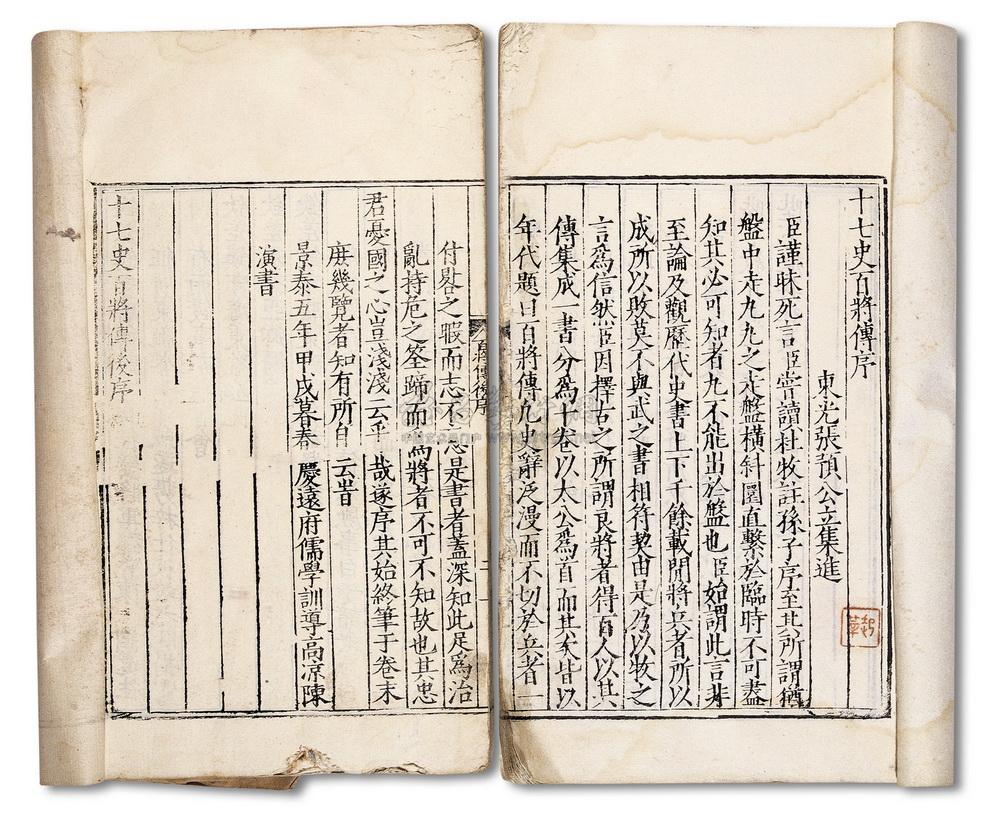 十七史百將傳序
東光張預公立集進
臣謹昧死言臣嘗讀杜牧註孫子序至其所謂猶
盤中走丸丸之走盤橫斜圓直繫於臨時不可盡
知其必可知者丸不能出於盤也臣始謂此言非
至論及觀歷代史書上下千餘載間將兵者所以
成所以敗莫不與武之書相符契由是乃以牧之
言爲信然臣因擇古之所謂良將者得百人以其
傳集成一書分爲十卷以太公爲首而其次皆以
年代題曰百將傳凡史辭泛漫而不切於兵者一
百將傳後序
二
付畧之暇而志不忘是書者蓋深知此足爲治
亂持危之筌蹄而爲將者不可不知故也其忠
君憂國之心豈淺淺云乎哉遂序其始終筆于卷末
庶幾覽者知有所自云旹
景泰五年甲戌暮春 慶遠府儒學訓導高涼陳
演書
十七史百將傳後序